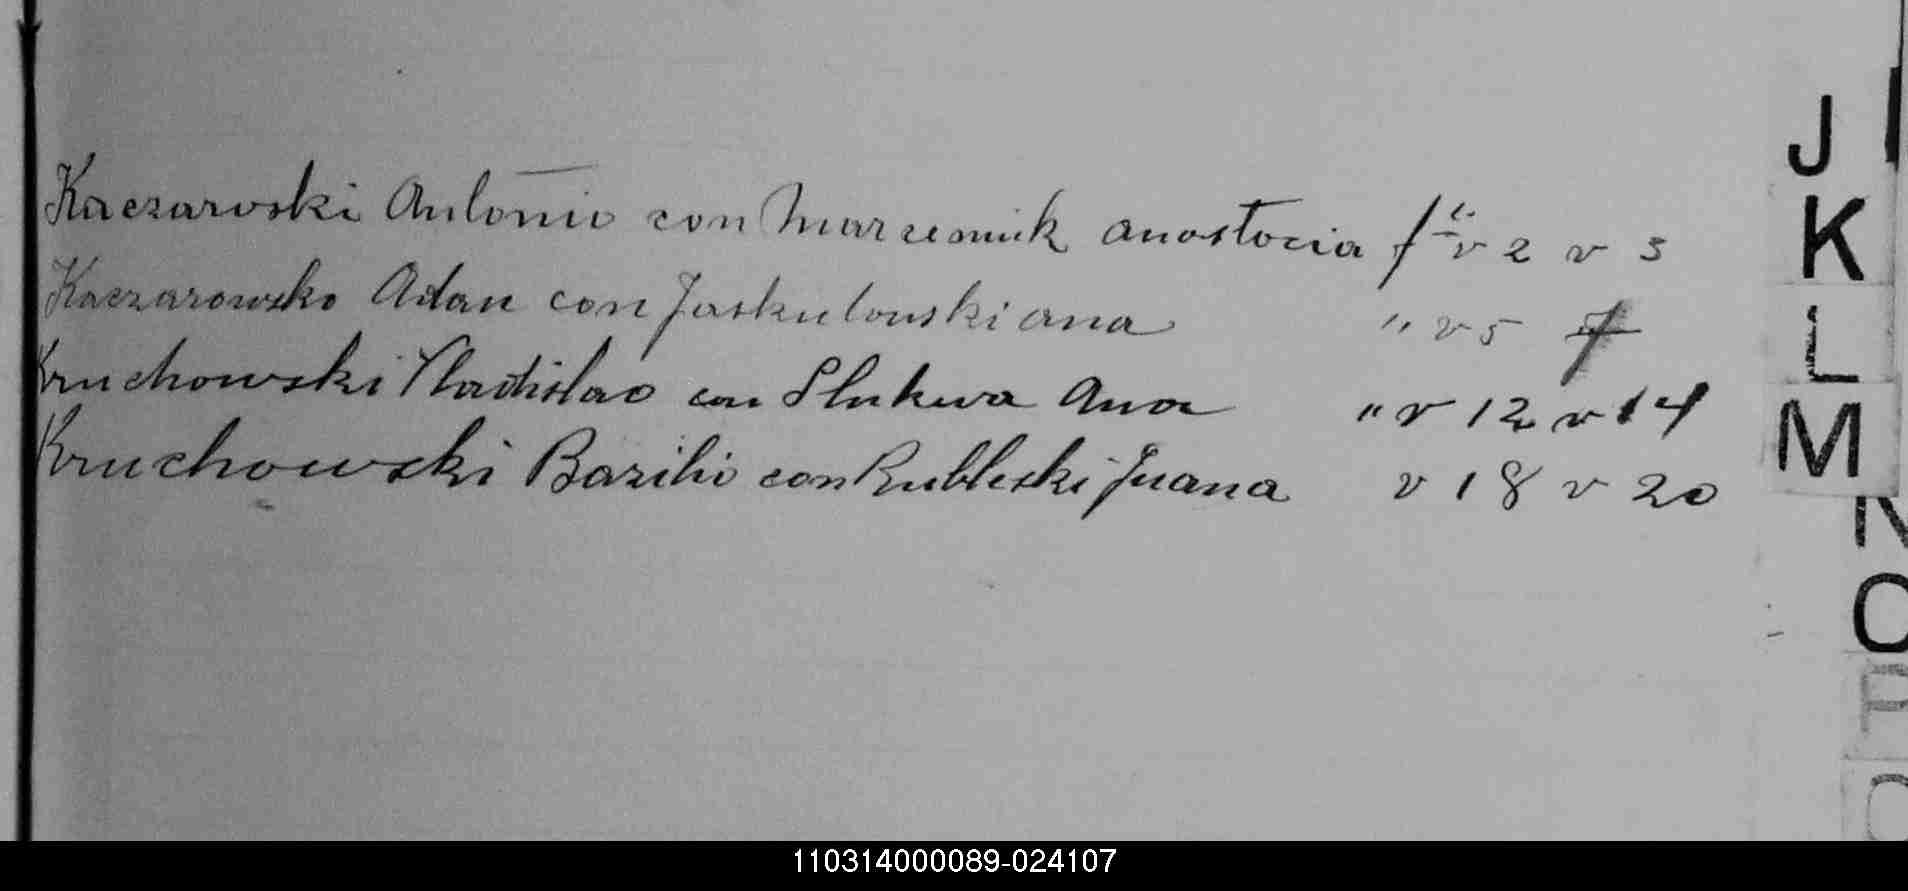 Kaczarwski Antonio con Marzesnuik anostocia f " v 2 v 3
Kaczarowsko Adan con Jaskulouski ana " v 5 7
Kruchowski Vladislao con Slukwa Ana " v 12 v 14
Kruchowski Bazilio con Rubleski Juana v 18 v 20
J
K
L
M
N
O
P
110314000089-024107